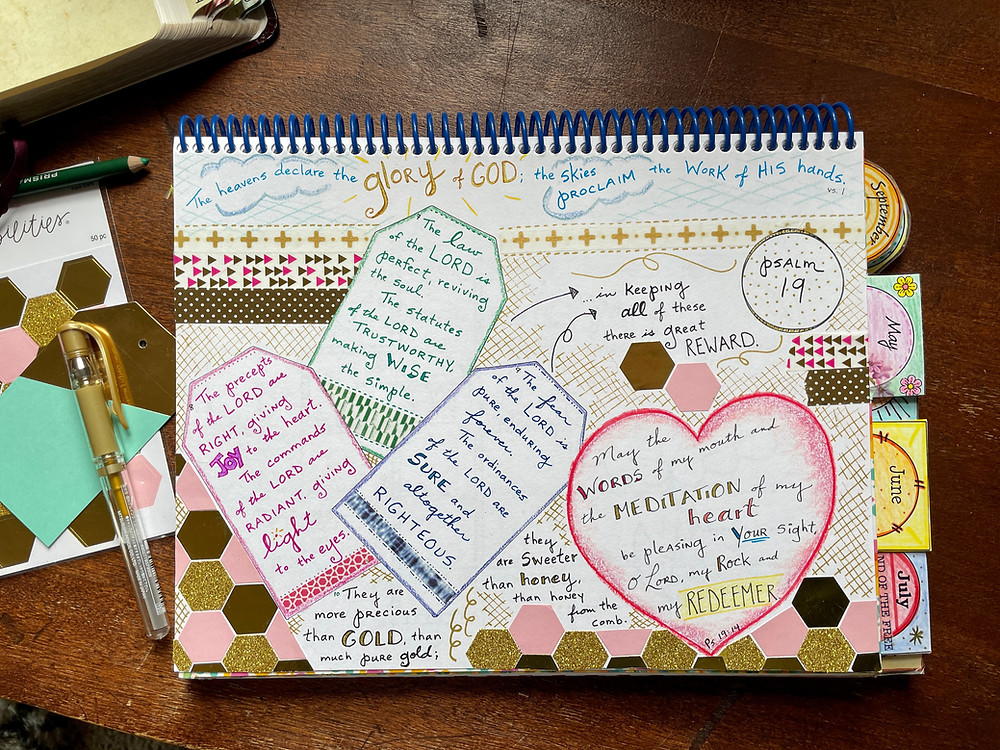 The heavens declare the glory of GOD; the skies PROCLAIM the WORK of HIS hands.
vs. 1
7 The law
of the LORD is
perfect, reviving
the soul.
The statutes
of the LORD are
TRUSTWORTHY,
making WISE
the simple.
8 The precepts
of the LORD are
RIGHT, giving
JOY to the heart.
The commands
of the LORD are
RADIANT, giving
light
to the eyes.
9 The fear
of the LORD is
pure, enduring
forever.
The ordinances
of the LORD are
SURE and
altogether
RIGHTEOUS.
10 They are
more precious
than GOLD, than
much pure gold;
they
are sweeter
than honey,
than honey
from the
comb.
...in keeping
all of these
there is great
REWARD.
PSALM
19
May the
WORDS of my mouth and
the MEDITATION of my
heart
be pleasing in YOUR sight,
O LORD, my Rock and
my REDEEMER
Ps. 19:14
September
May
June
July
OF THE FREE
PRISM
bilities
50 pc